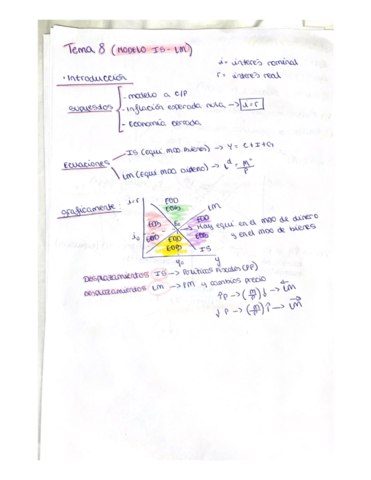 Tema 8 (MODELO IS-LM)
i = interés nominal
r = interés real
· Introducción
Supuestos
- modelo a C/P
- Inflación esperada nula → i=r
- Economía cerrada
Ecuaciones
IS (Equi mdo bienes) → Y = C+I+G
LM (Equi mdo dinero) → L^d = M^s/P
Gráficamente:
i=r
LM
E₀
→ Hay equi en el mdo de dinero
y en el mdo de bienes
i₀
IS
Y₀
Y
Desplazamientos IS → Políticas fiscales (PF)
Desplazamientos LM → PM y cambios precio
↑P → (M/P)↓ → LM
↓P → (M/P)↑ → LM